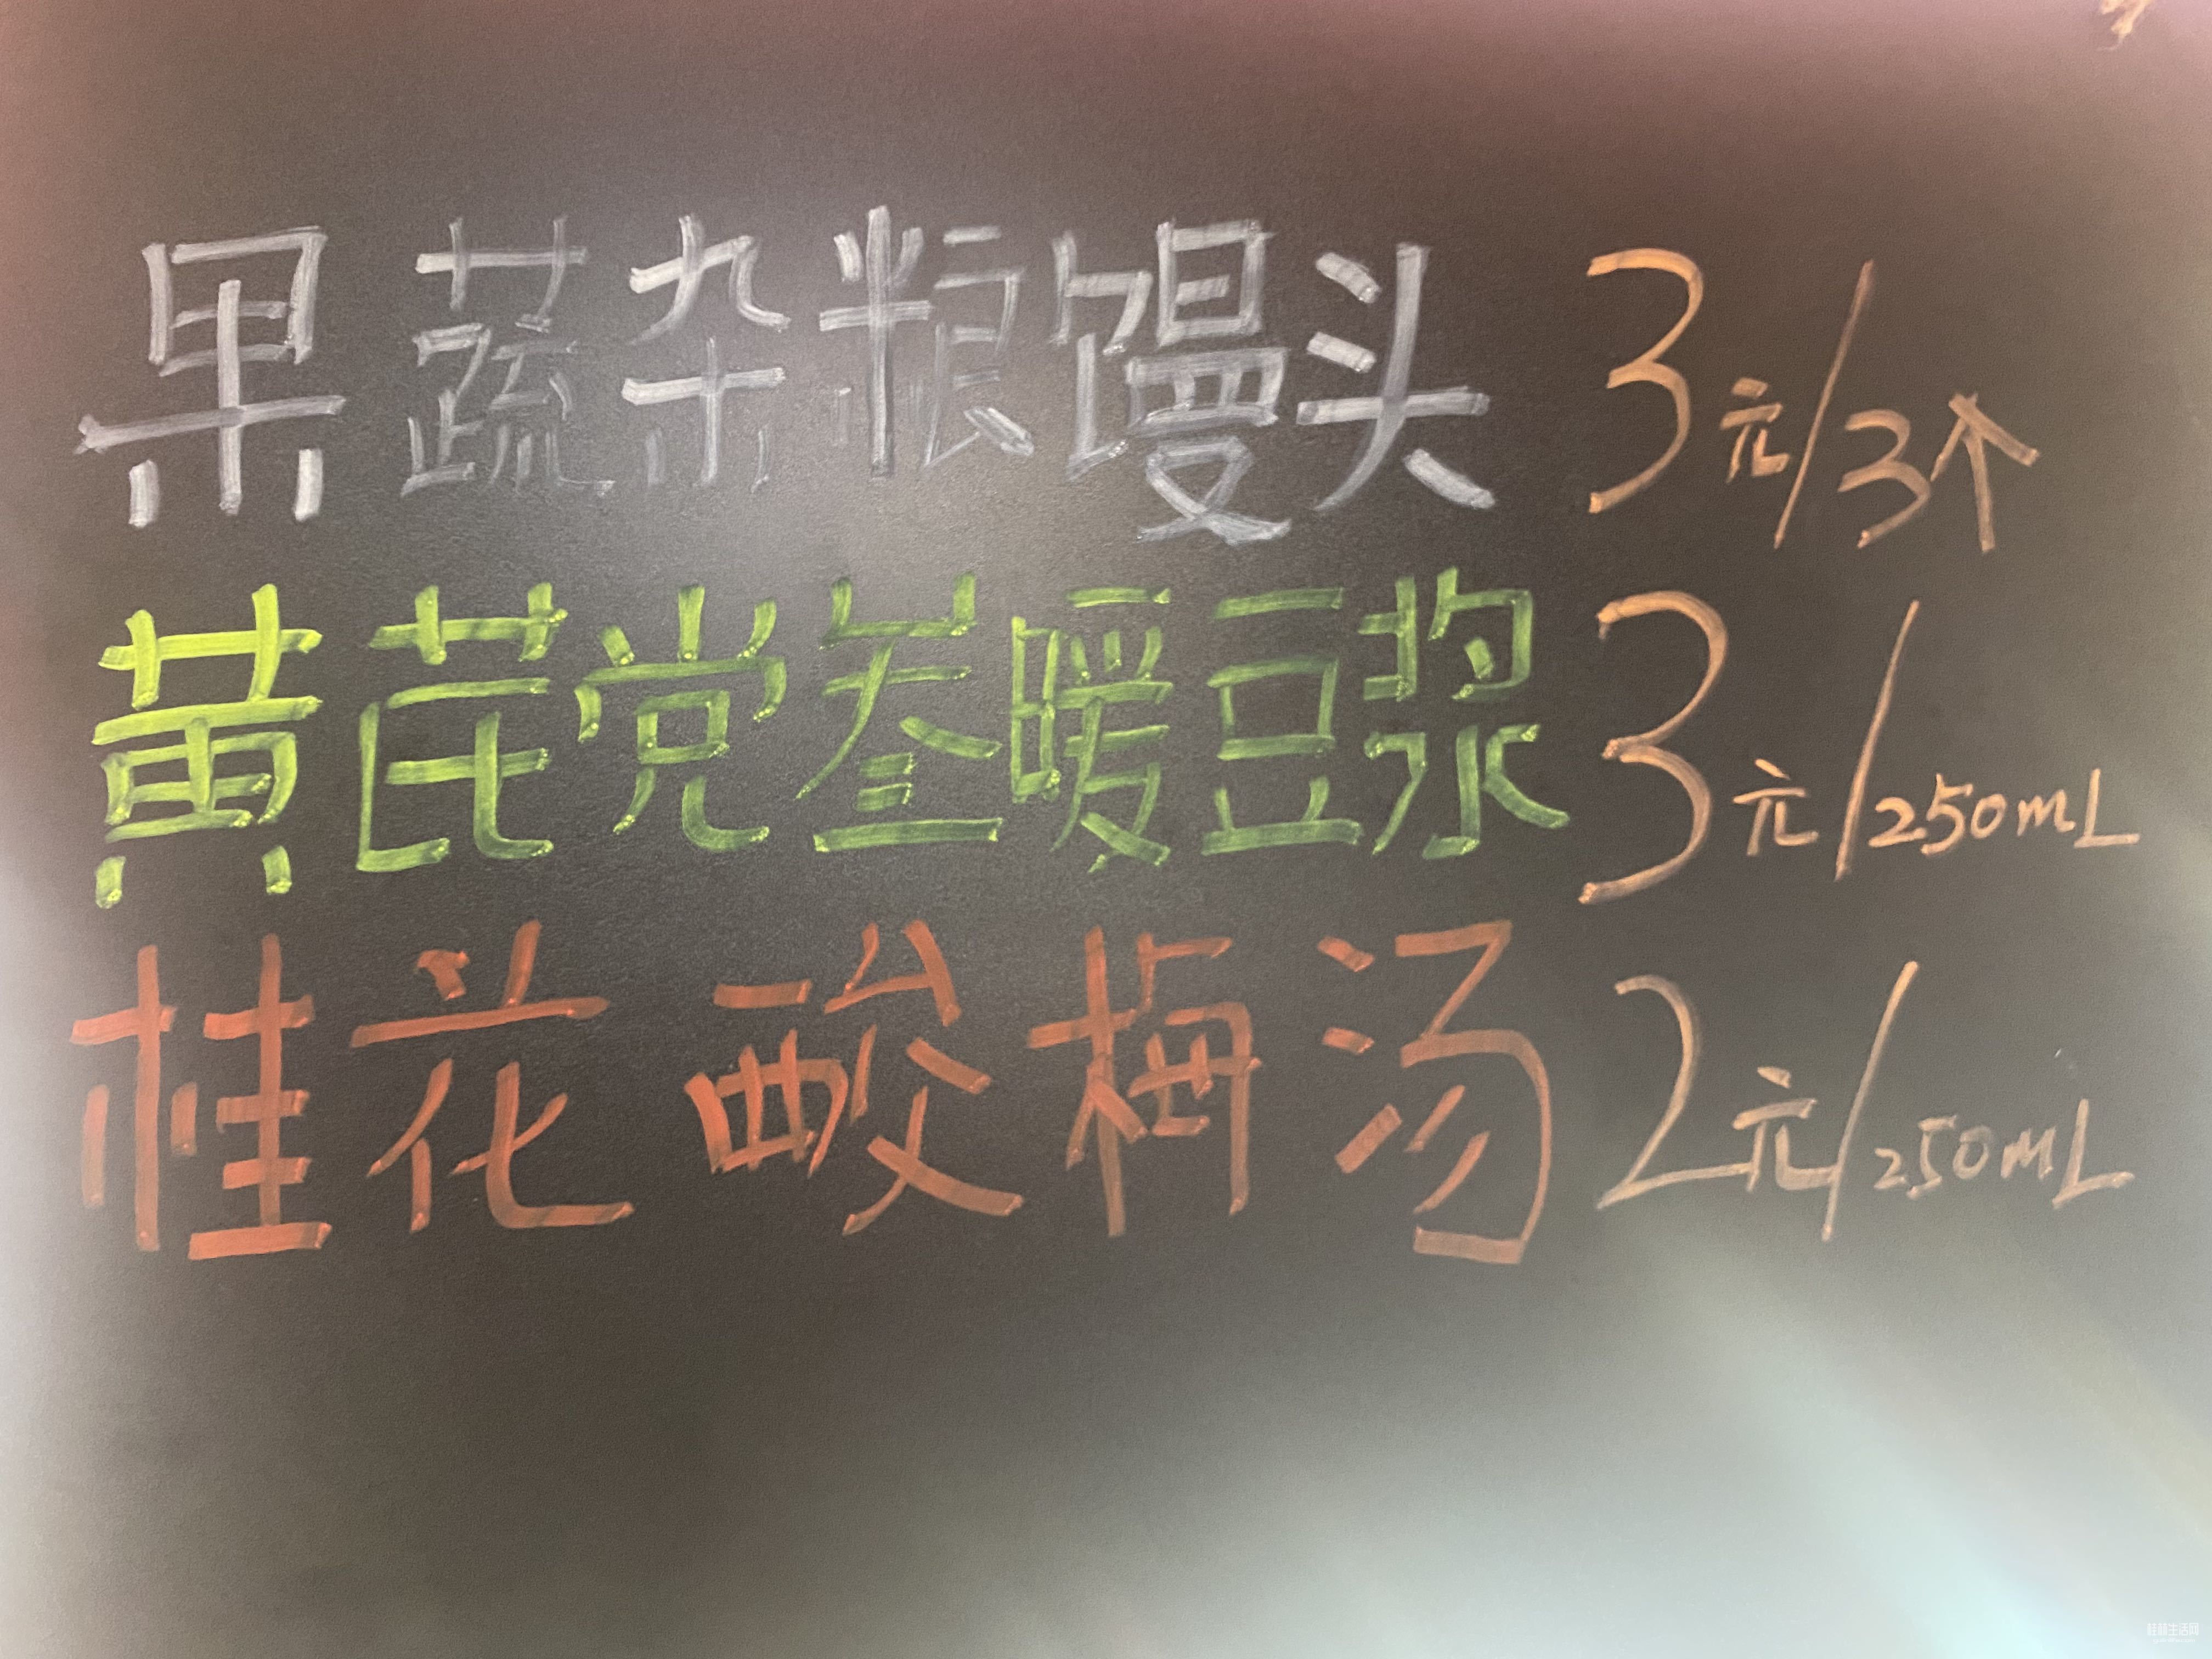 果蔬杂粮馒头 3元/3个
黄芪党参暖豆浆 3元/250mL
桂花酸梅汤 2元/250mL
桂林生活网